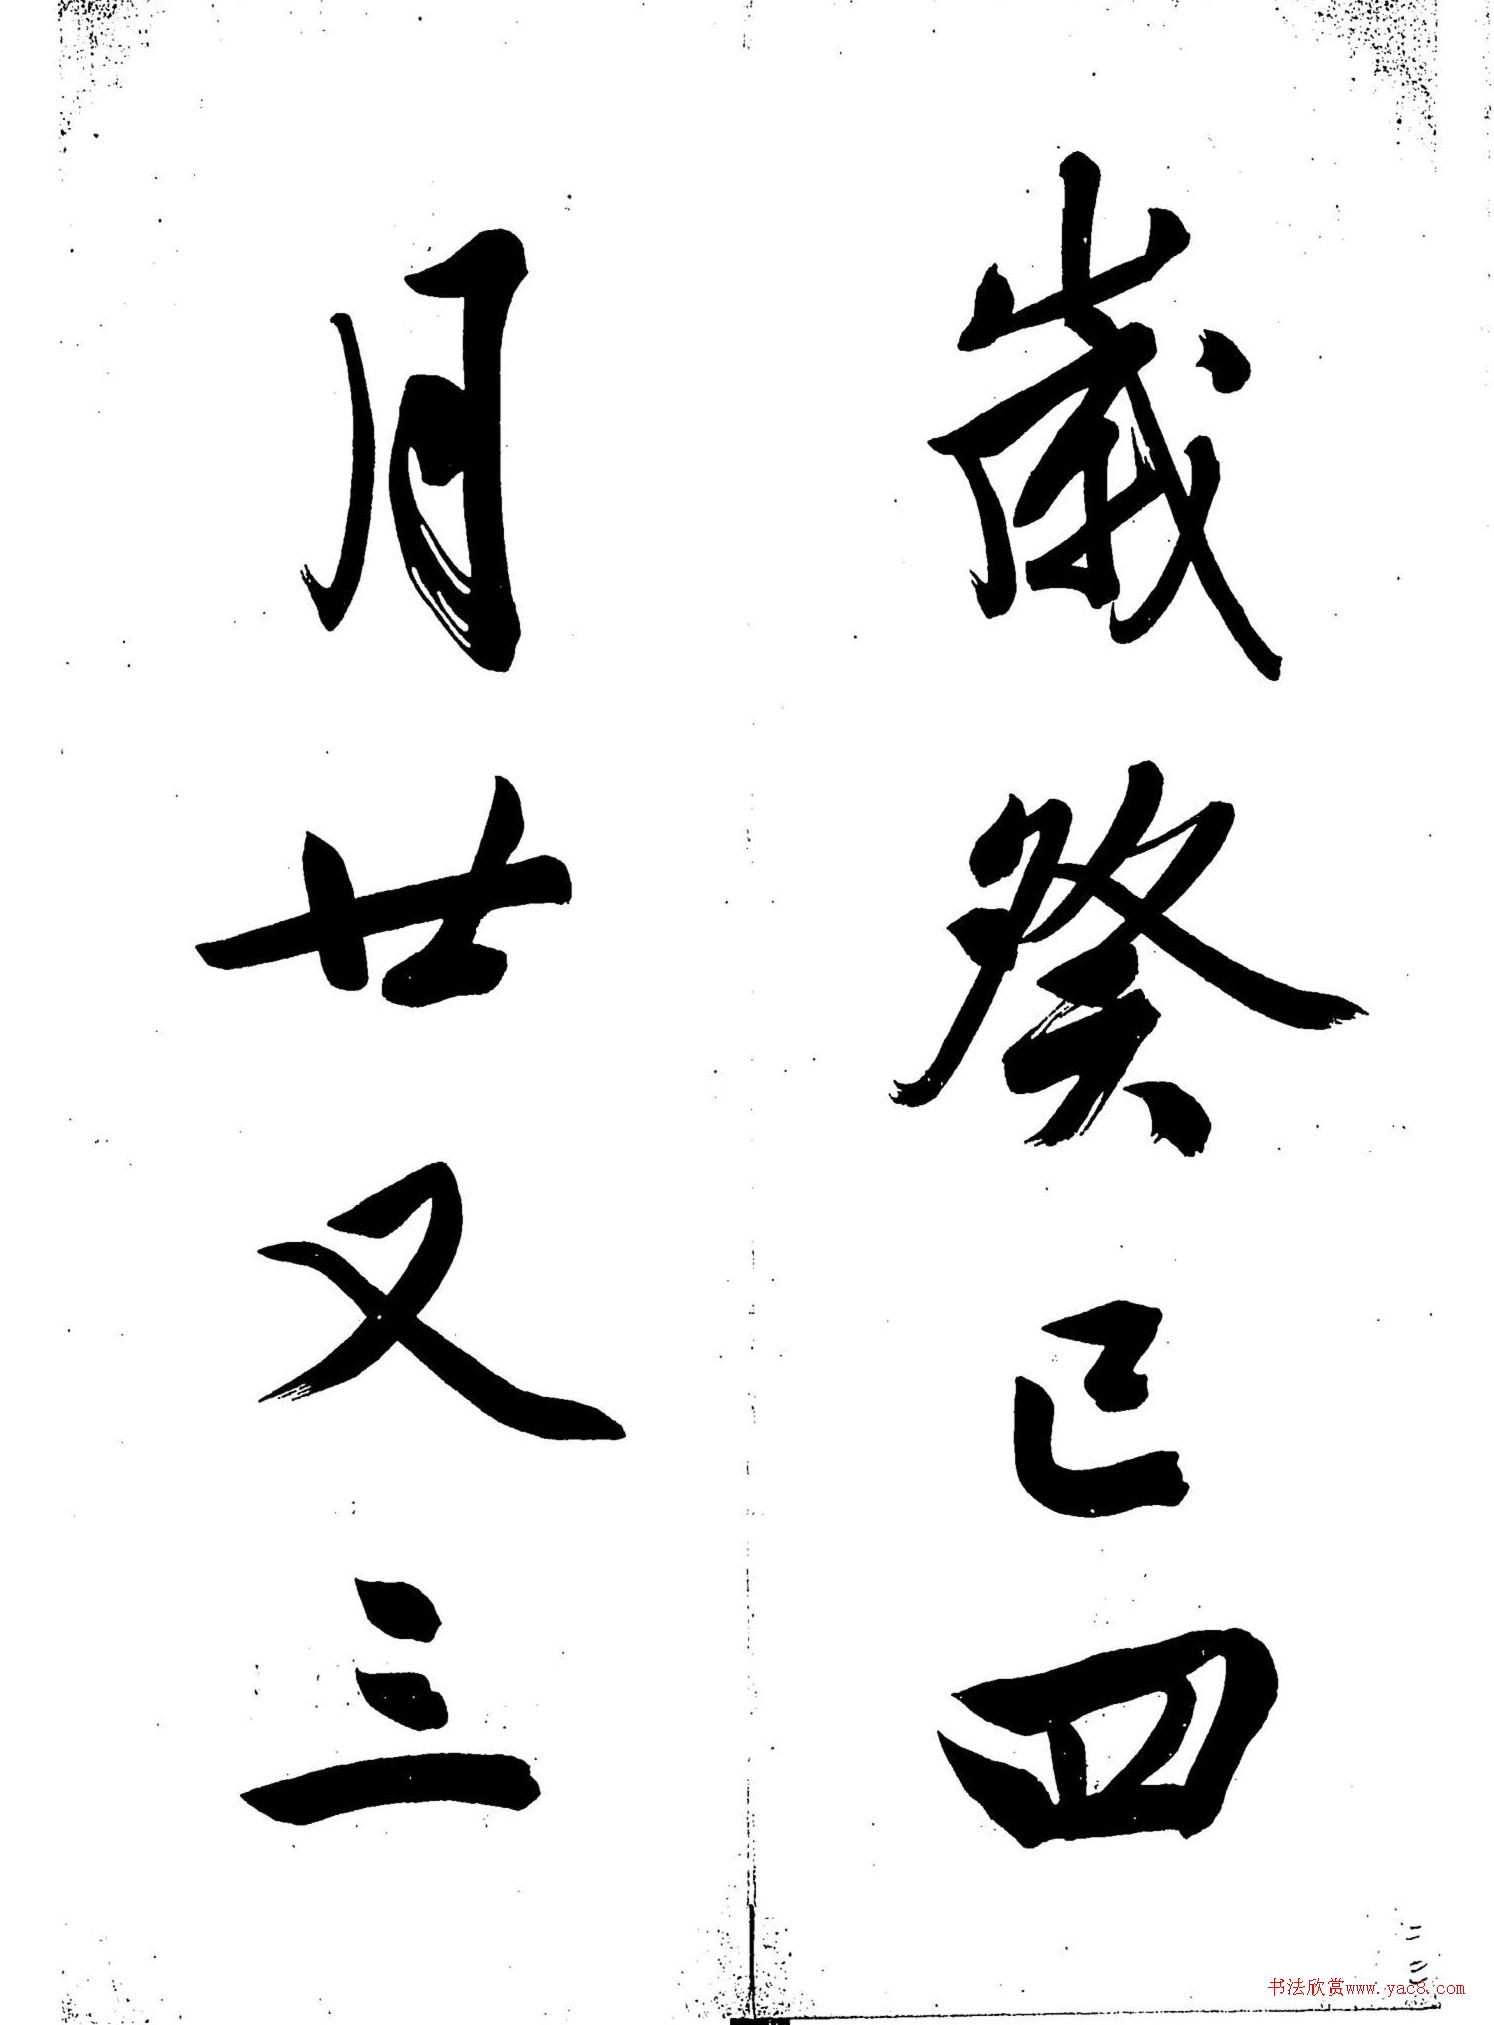 歲癸巳四
月廿又三
书法欣赏www.yac8.com